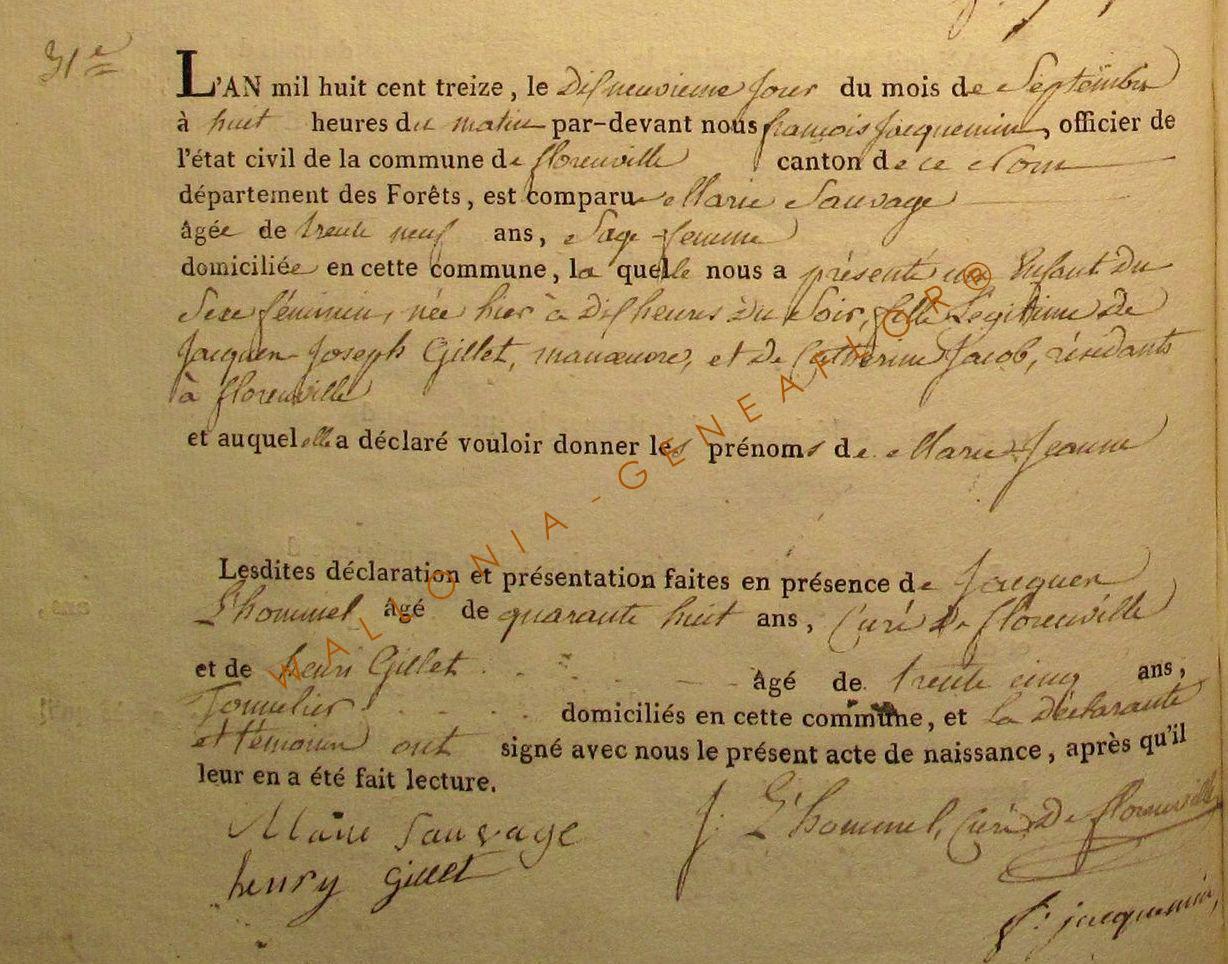 31e
L'AN mil huit cent treize, le Dixneuvieme jour du mois de Septembre
à huit heures du matin par-devant nous françois Jacquemin, officier de
l'état civil de la commune de florenville canton de ce Nom
département des Forêts, est comparue Marie Sauvage
âgée de trente neuf ans, Sage-femme
domiciliée en cette commune, la quelle nous a présenté un Enfant du
Sexe féminin, née hier à Dix heures du Soir, fille Légitime de
Jacques-Joseph Gillet, manœuvre, et de Catherine Jacob, résidants
à florenville
et auquel elle a déclaré vouloir donner les prénoms de Marie-Jeanne
Lesdites déclaration et présentation faites en présence de Jacques
L'hommel âgé de quarante huit ans, Curé de florenville
et de henri Gillet âgé de trente cinq ans,
Tonnelier domiciliés en cette commune, et la Déclarante
et témoins ont signé avec nous le présent acte de naissance, après qu'il
leur en a été fait lecture.
Marie Sauvage
J. L'hommel, Curé De florenville
henry Gillet
f: jacquemin,
WALLONIA-GENEAPHOR®